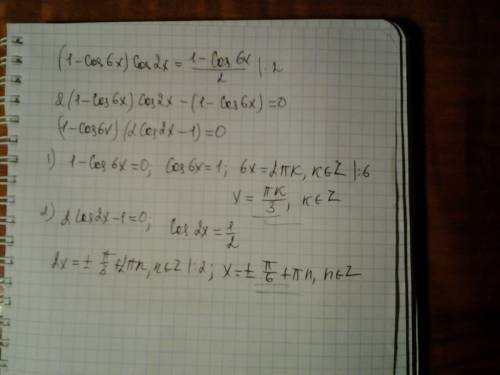 (1-Cos6x)Cos2x = \frac{1-Cos6x}{2} |·2
2(1-Cos6x)Cos2x-(1-Cos6x)=0
(1-Cos6x)(2Cos2x-1)=0
1) 1-Cos6x=0; Cos6x=1; 6x=2πк, к∈Z |:6
x = \frac{πк}{3}, к∈Z
2) 2Cos2x-1=0; Cos2x=\frac{1}{2}
2x=± \frac{π}{3}+2πn, n∈Z |:2; x=± \frac{π}{6}+πn, n∈Z